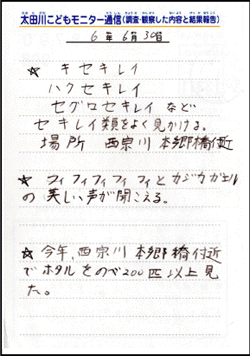 太田川こどもモニター通信(調査・観察した内容と結果報告)
6年 6月30日
☆ キセキレイ
ハクセキレイ
セグロセキレイ など
セキレイ類をよく見かける。
場所 西宗川 本郷橋付近
☆ フィフィフィフィフィとカジカガエル
の美しい声が聞こえる。
☆ 今年、西宗川 本郷橋付近
でホタルをのべ200匹以上見
た。